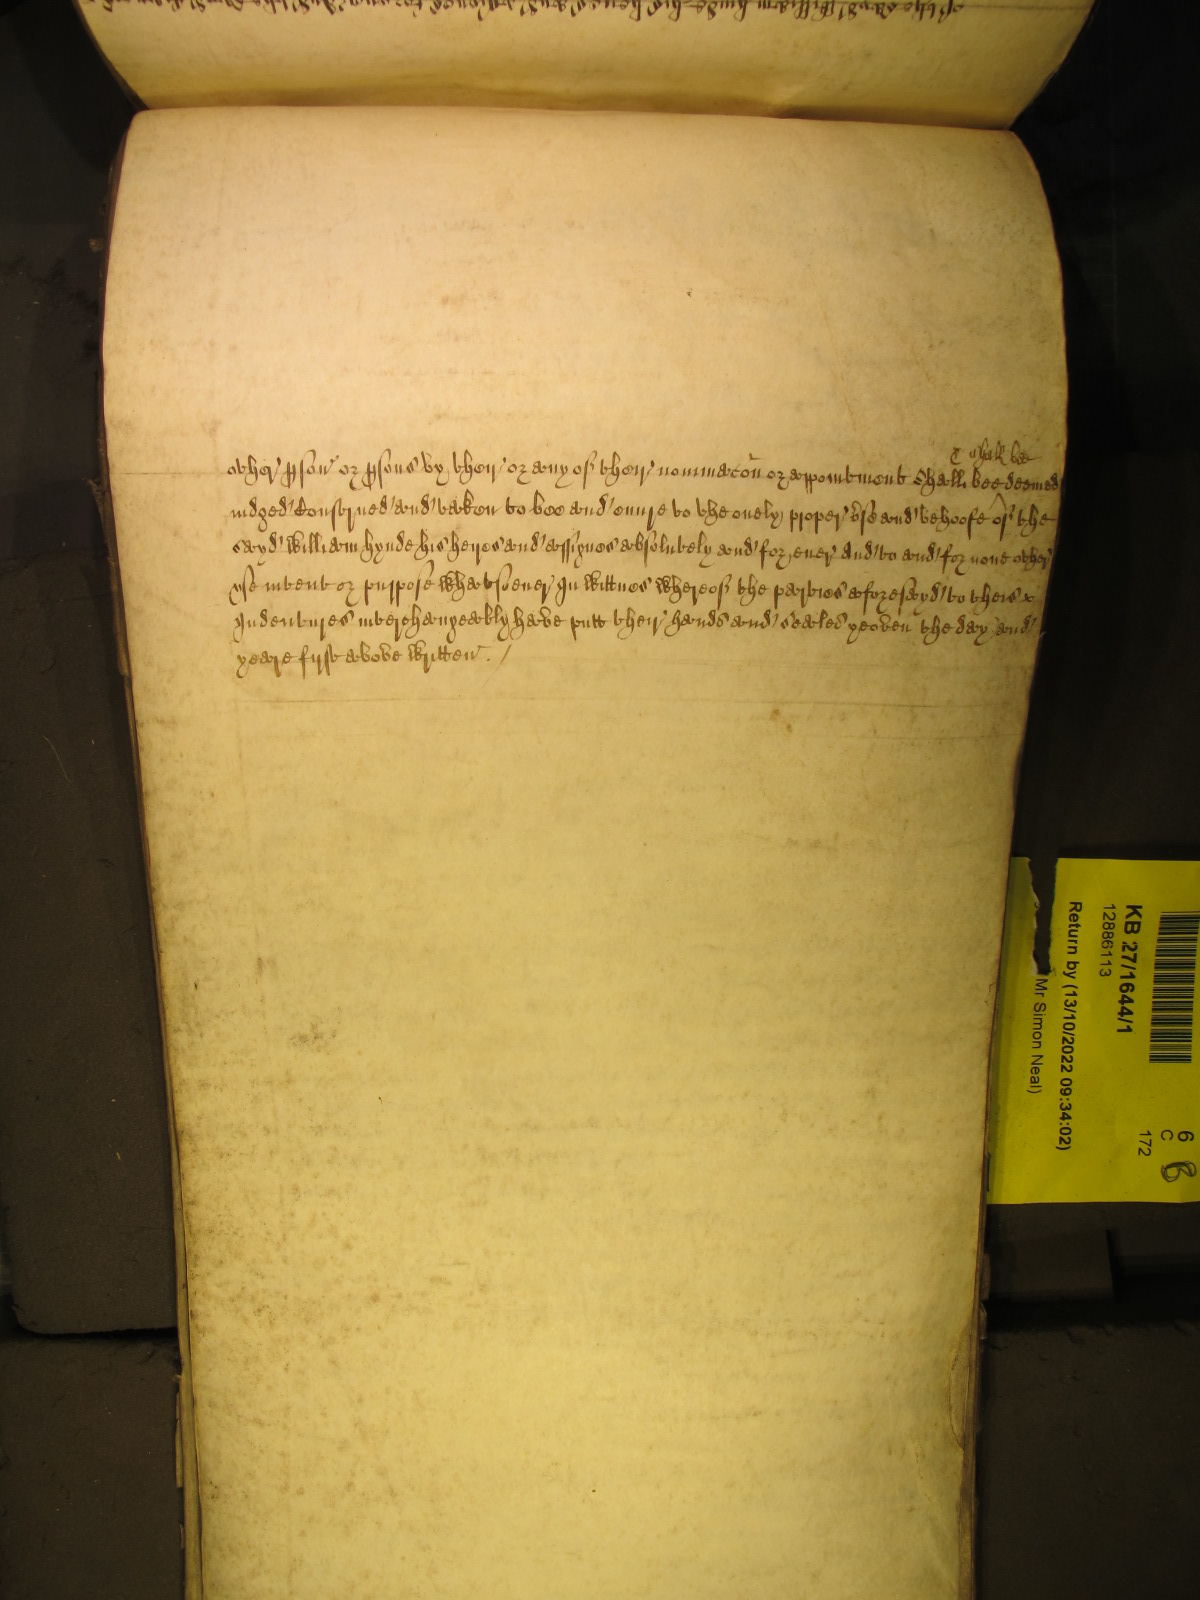 & shalbe
other p(er)son or p(er)sons by their or any of their nominac(i)on or appointment Shall bee deemed
iudged Construed and taken to bee and enure to the onely proper vse and behoofe of the
sayd William hynde his heires and assignes absolutely and for ever And to and for none other
vse intent or purpose whatsoever In wittnes whereof the parties aforesayd to theis
Indentures interchangeably have putt their hands and seales yeoven the day and
yeare first above written . /
KB 27/1644/1
12886113
Return by (13/10/2022 09:34:02)
Mr Simon Neal)
6
C
172
B